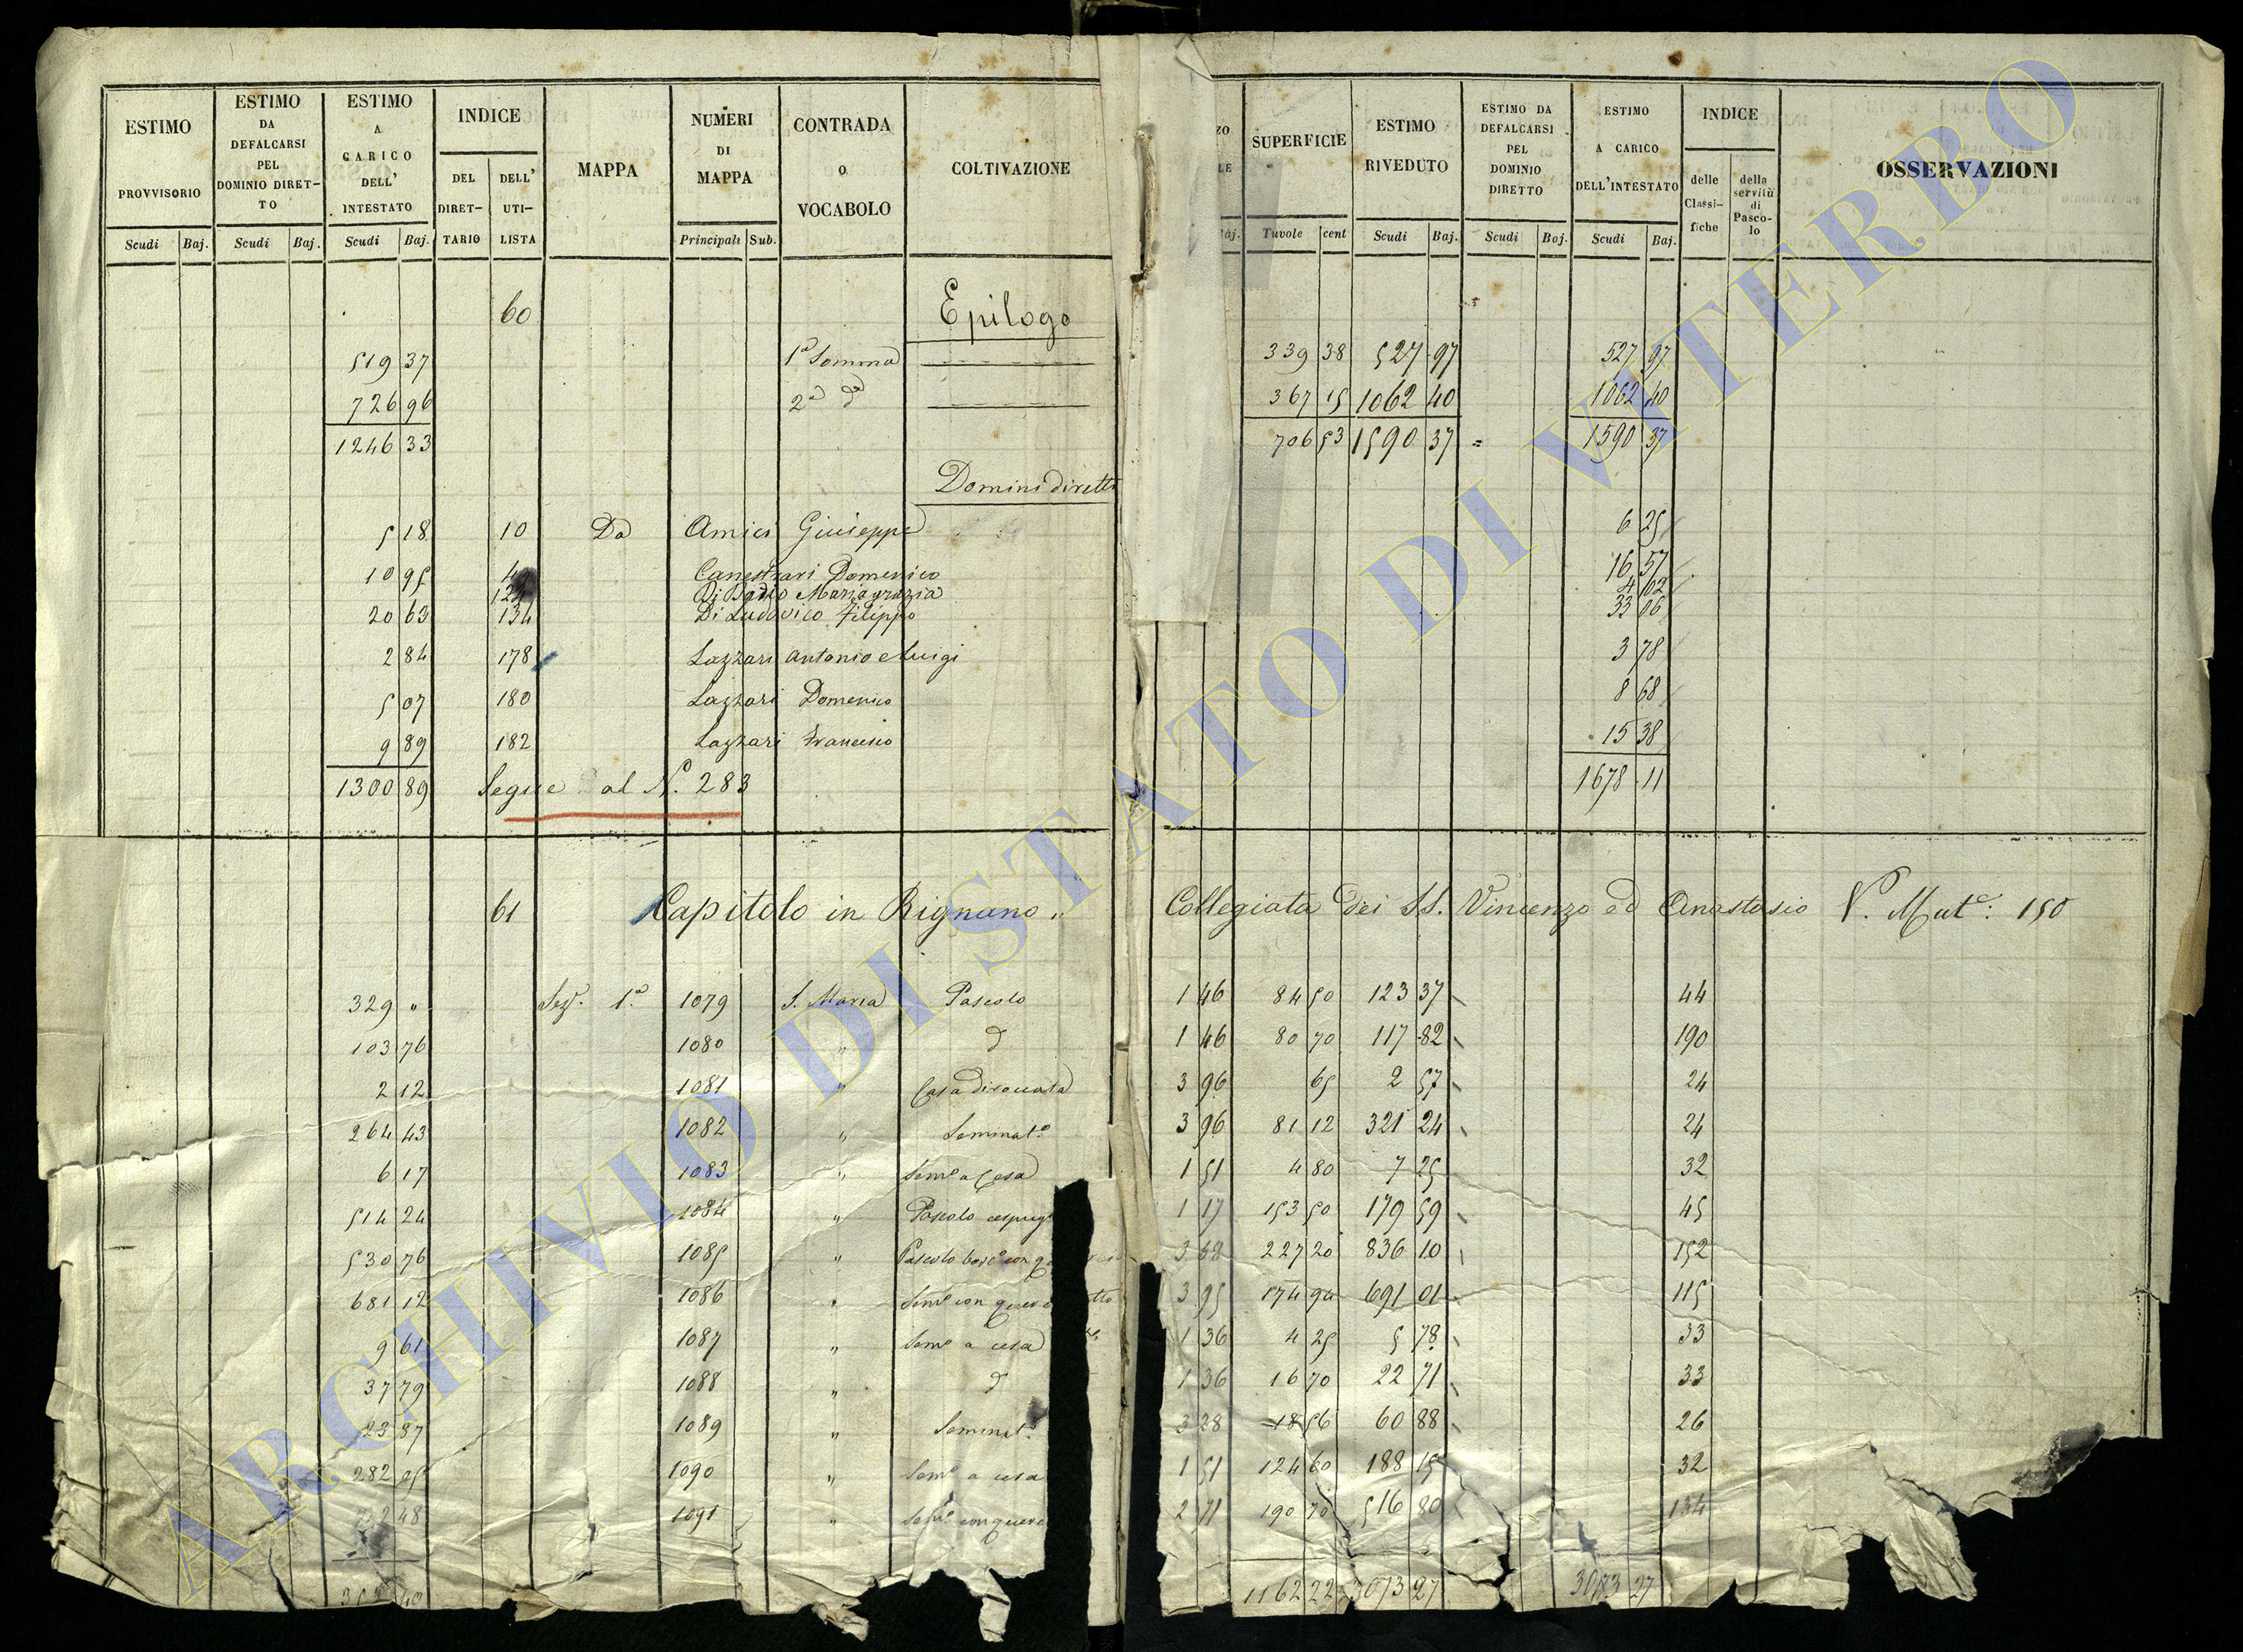 ESTIMO PROVVISORIO
Scudi Baj.
ESTIMO DA DEFALCARSI PEL DOMINIO DIRET-TO
Scudi Baj.
ESTIMO A CARICO DELL' INTESTATO
Scudi Baj.
INDICE
DEL DIRET-TARIO
DELL' UTI-LISTA
MAPPA
NUMERI DI MAPPA
Principali Sub.
CONTRADA O VOCABOLO
COLTIVAZIONE
SUPERFICIE
Tavole cent
ESTIMO RIVEDUTO
Scudi Baj.
ESTIMO DA DEFALCARSI PEL DOMINIO DIRETTO
Scudi Baj.
ESTIMO A CARICO DELL'INTESTATO
Scudi Baj.
INDICE
delle Classi-fiche
della servitù di Pasco-lo
OSSERVAZIONI
60 Epilogo
519 37 1ª Somma 339 38 527 97 527 97
726 96 2ª dª 367 15 1062 40 1062 40
1246 33 706 53 1590 37 = 1590 37
Domini diretti
5 18 10 Da Amici Giuseppe 6 25
10 95 Canestrari Domenico 16 57
Mariagrazia 4 02
20 63 134 Di Ludovico Filippo 33 06
2 84 178 Lazzari Antonio e Luigi 3 78
5 07 180 Lazzari Domenico 8 68
9 89 182 Lazzari Francesco 15 38
1300 89 Segue al N.º 283 1678 11
61 Capitolo in Rignano „ Collegiata dei SS. Vincenzo ed Anastasio V. Mutᵉ: 150
329 „ Sezº. 1ª. 1079 S. Maria Pascolo 1 46 84 50 123 37 44
103 76 1080 „ d 1 46 80 70 117 82 190
2 12 1081 „ Casa diroccata 3 96 65 2 57 24
264 43 1082 „ Seminatº 3 96 81 12 321 24 24
6 17 1083 „ Semº a Cesa 1 51 4 80 7 25 32
514 24 1084 „ Pascolo cespugº 1 17 153 50 179 59 45
530 76 1085 „ Pascolo boscº con 3 68 227 20 836 10 152
681 12 1086 „ Semº con querc 3 95 174 94 691 01 115
9 61 1087 „ Semº a cesa 1 36 4 25 5 78 33
37 79 1088 „ d 1 36 16 70 22 71 33
23 87 1089 „ Seminatº 3 28 18 56 60 88 26
282 05 1090 „ Semº a cesa 1 51 124 60 188 15 32
48 1091 „ Semº con querc 2 71 190 70 516 80 134
1162 22 3073 27 3073 27
ARCHIVIO DI STATO DI VITERBO